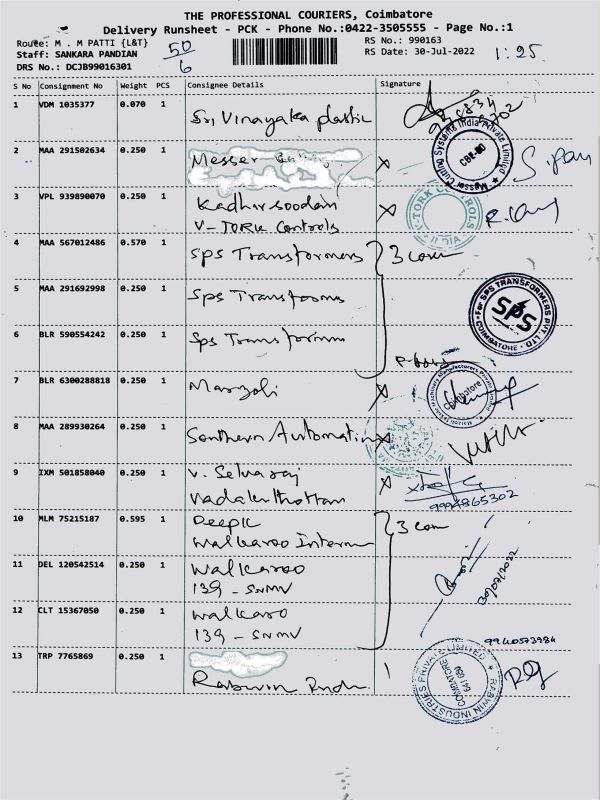 THE PROFESSIONAL COURIERS, Coimbatore
Delivery Runsheet - PCK - Phone No.:0422-3505555 - Page No.:1
Route: M . M PATTI {L&T} 50/6 RS No.: 990163
Staff: SANKARA PANDIAN RS Date: 30-Jul-2022 1:25
DRS No.: DCJB99016301
S No Consignment No Weight PCS Consignee Details Signature
1 VDM 1035377 0.070 1 Sri Vinayaka plastic
2 MAA 291502634 0.250 1 Messer
Messer Cutting Systems India Private Limited CBE-40
3 VPL 939890070 0.250 1 Kadhar soodan
V-TORK Controls
V-TORK CONTROLS INDIA
4 MAA 567012486 0.570 1 Sps Transformers 3 con
5 MAA 291692998 0.250 1 Sps Transforms
For SPS TRANSFORMERS PVT. LTD. SPS COIMBATORE
6 BLR 590554242 0.250 1 Sps Transformers
7 BLR 6300288818 0.250 1 Marzoli
Coimbatore
8 MAA 289930264 0.250 1 Southern Automation
9 IXM 501858040 0.250 1 V. Selvaraj
Vadakuthottam
9994865302
10 MLM 75215187 0.595 1 Deepk 3 con
Walkaroo Intern
11 DEL 120542514 0.250 1 Walkaroo
139 - SNMV
12 CLT 15367050 0.250 1 Walkaro
139 - SNMV
9940573984
13 TRP 7765869 0.250 1
Rabwin Indu
RABWIN INDUSTRIES PRIVATE LIMITED COIMBATORE 641 050